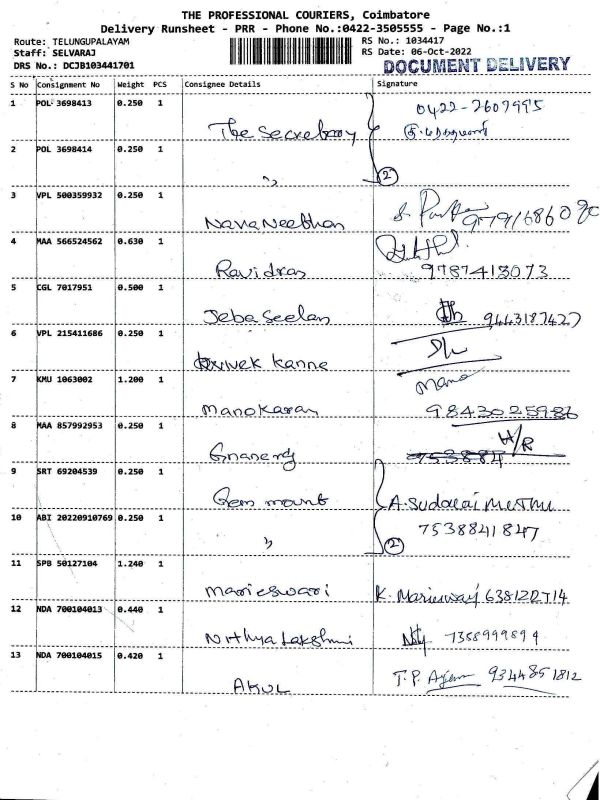 THE PROFESSIONAL COURIERS, Coimbatore
Delivery Runsheet - PRR - Phone No.:0422-3505555 - Page No.:1
Route: TELUNGUPALAYAM RS No.: 1034417
Staff: SELVARAJ RS Date: 06-Oct-2022
DRS No.: DCJB103441701 DOCUMENT DELIVERY
S No Consignment No Weight PCS Consignee Details Signature
1 POL 3698413 0.250 1 The Secretary 0422-2607995
2 POL 3698414 0.250 1 " 2
3 VPL 500359932 0.250 1 Navaneethan
4 MAA 566524562 0.630 1 Ravidran 9787413073
5 CGL 7017951 0.500 1 Jeba Seelan 9443187427
6 VPL 215411686 0.250 1 Vivek Kanne
7 KMU 1063002 1.200 1 Manokaran Mano 9843025986
8 MAA 857992953 0.250 1 H/R
9 SRT 69204539 0.250 1 Gem mount A. Sudalai Muthu
10 ABI 20220910769 0.250 1 " 2 7538841847
11 SPB 50127104 1.240 1 Marieswari K.
12 NDA 700104013 0.440 1 Nithya Lakshmi 7358999899
13 NDA 700104015 0.420 1 AKUL T.P. 9344851812